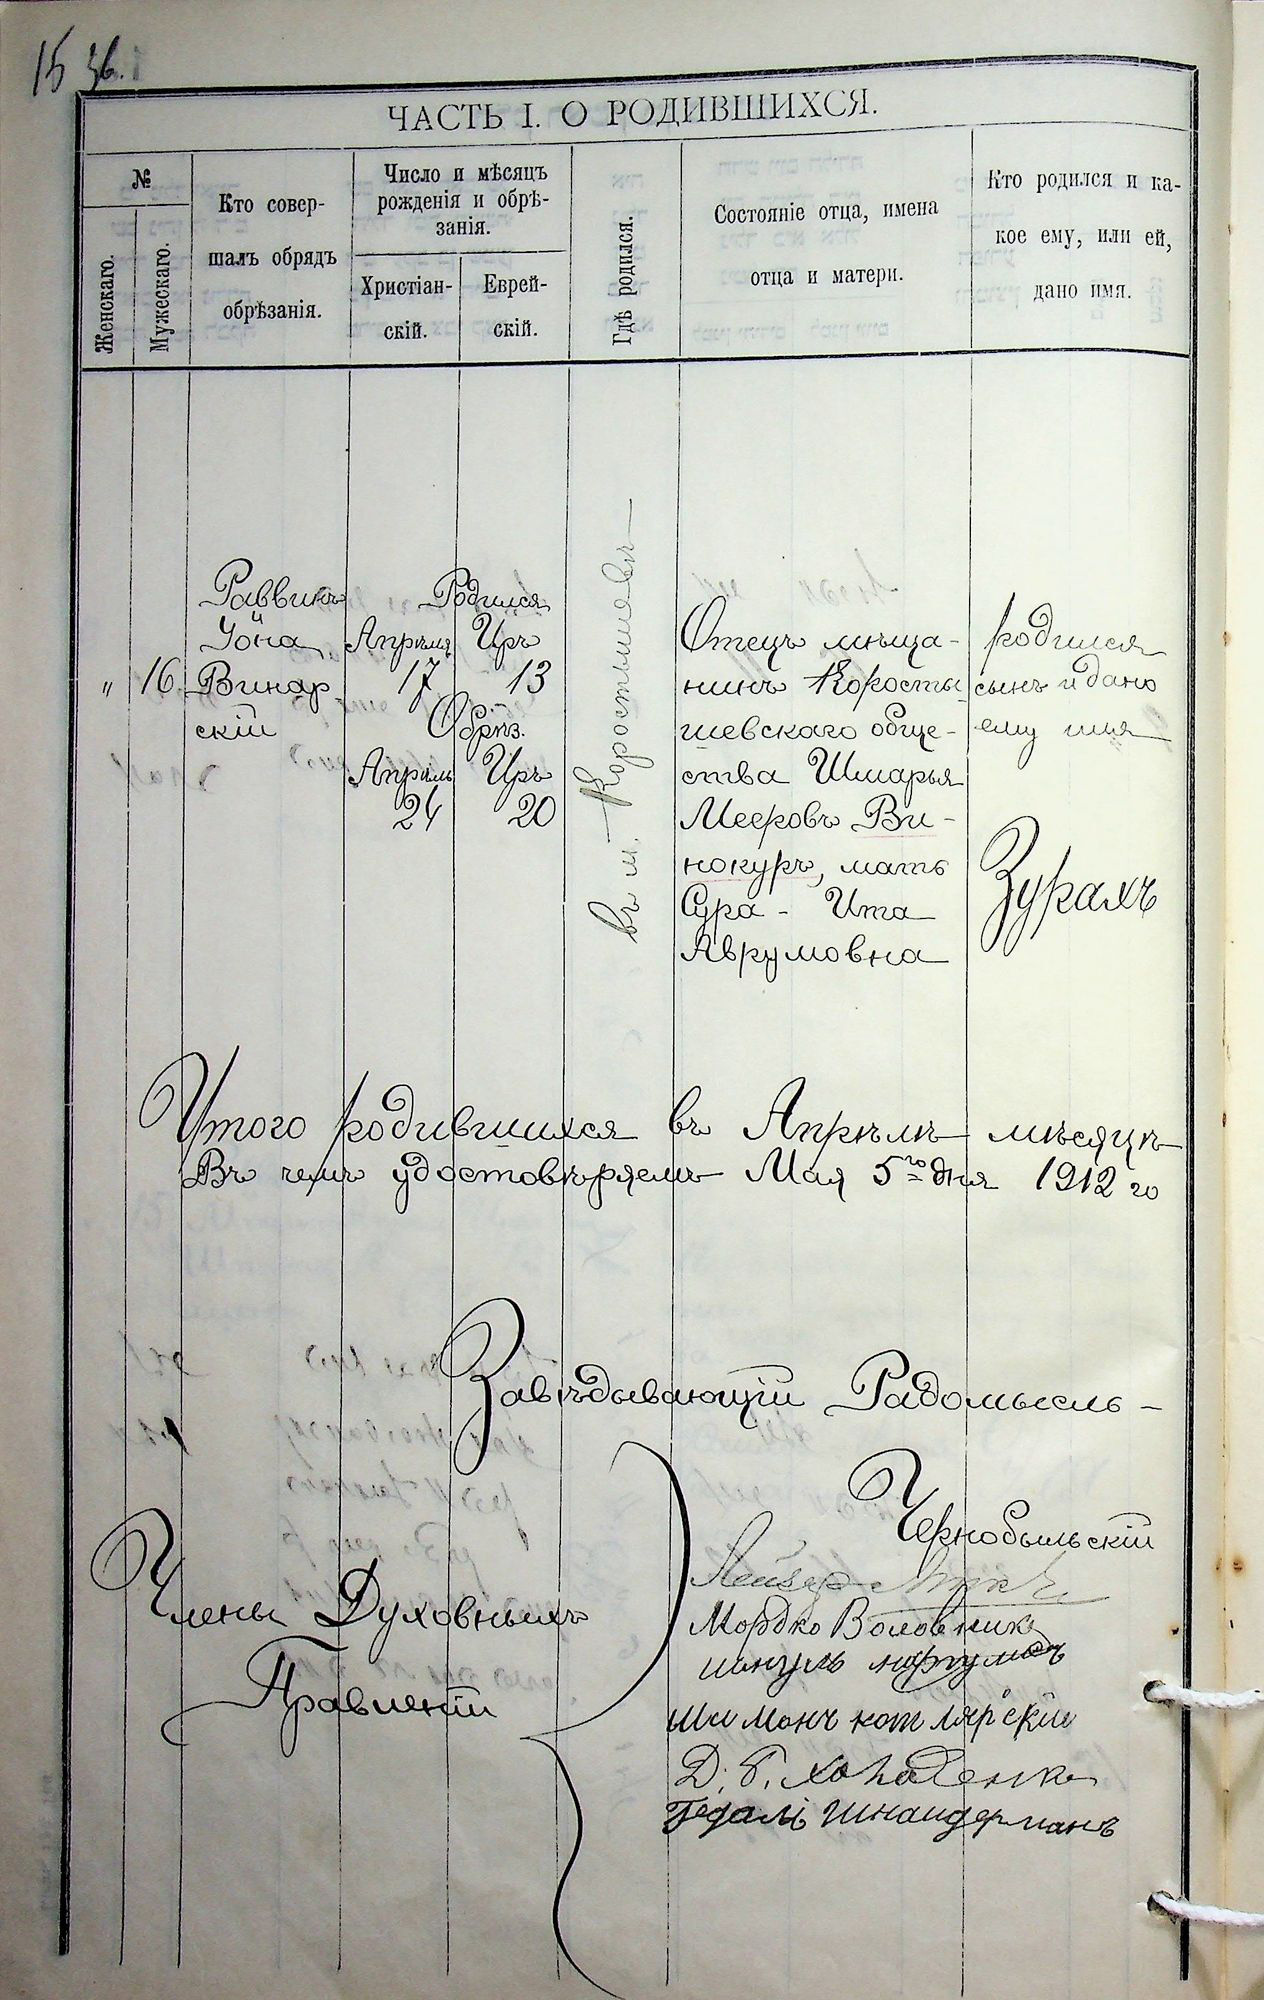 15 зв.
ЧАСТЬ I. О РОДИВШИХСЯ.
№
Женскаго.
Мужескаго.
Кто совер-
шалъ обрядъ
обрѣзанія.
Число и мѣсяцъ
рожденія и обрѣ-
занія.
Христіан-
скій.
Еврей-
скій.
Гдѣ родился.
Состояніе отца, имена
отца и матери.
Кто родился и ка-
кое ему, или ей,
дано имя.
" 16
Раввинъ
Іона
Винар
скій
Родился
Апрѣля Иръ
17 13
Обрѣз.
Апрѣль Иръ
24 20
въ м. Коростышевѣ
Отецъ мѣща-
нинъ Коросты
шевскаго обще-
ства Шмарья
Мееровъ Ви-
нокуръ, мать
Сура - Ита
Аврумовна
родился
сынъ и дано
ему имя
Зурахъ
Итого родившихся въ Апрѣлѣ мѣсяцѣ
Въ чемъ удостовѣряемъ Мая 5го дня 1912 го
Завѣдывающій Радомысль-
Чернобыльскій
Члены Духовныхъ
Правленій
Лейзеръ
Мордко Воловник
Шимонъ котлярскій
Д. Б.
Гедалі Шнайдерманъ